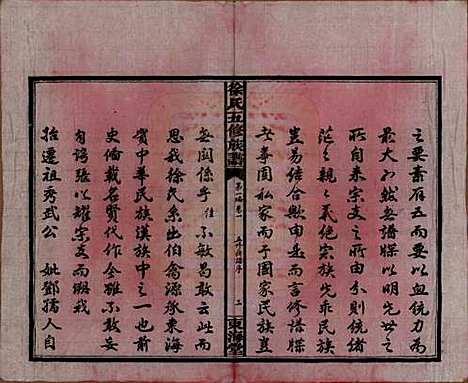 之要素有五而要以血統力為
最大不然無譜牒以明先世之
所自來宗支之所由分則統緒
茫茫親親之義絕宗族先乖民族
豈易結合歟由是而言修譜牒
之事固私家而于國家民族豈
無關係乎任不敏曷敢云此而
思我徐氏系出伯禽源承東海
實中華民族漢族中之一也前
史備載名賢代作金雖不敢妄
自誇張以耀宗支而溯我
始遷祖秀武公 妣鄧孺人自
徐氏五修族譜
東海堂